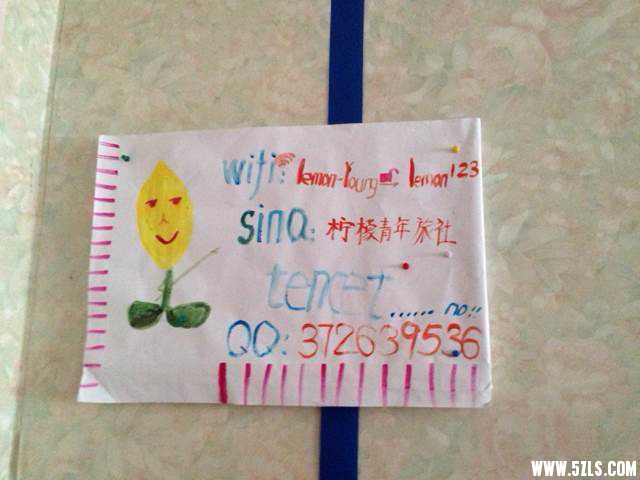 wifi: lemon-Young lemon123
sina: 柠檬青年旅社
tencet...... no!!
QQ: 372639536
WWW.5ZLS.COM